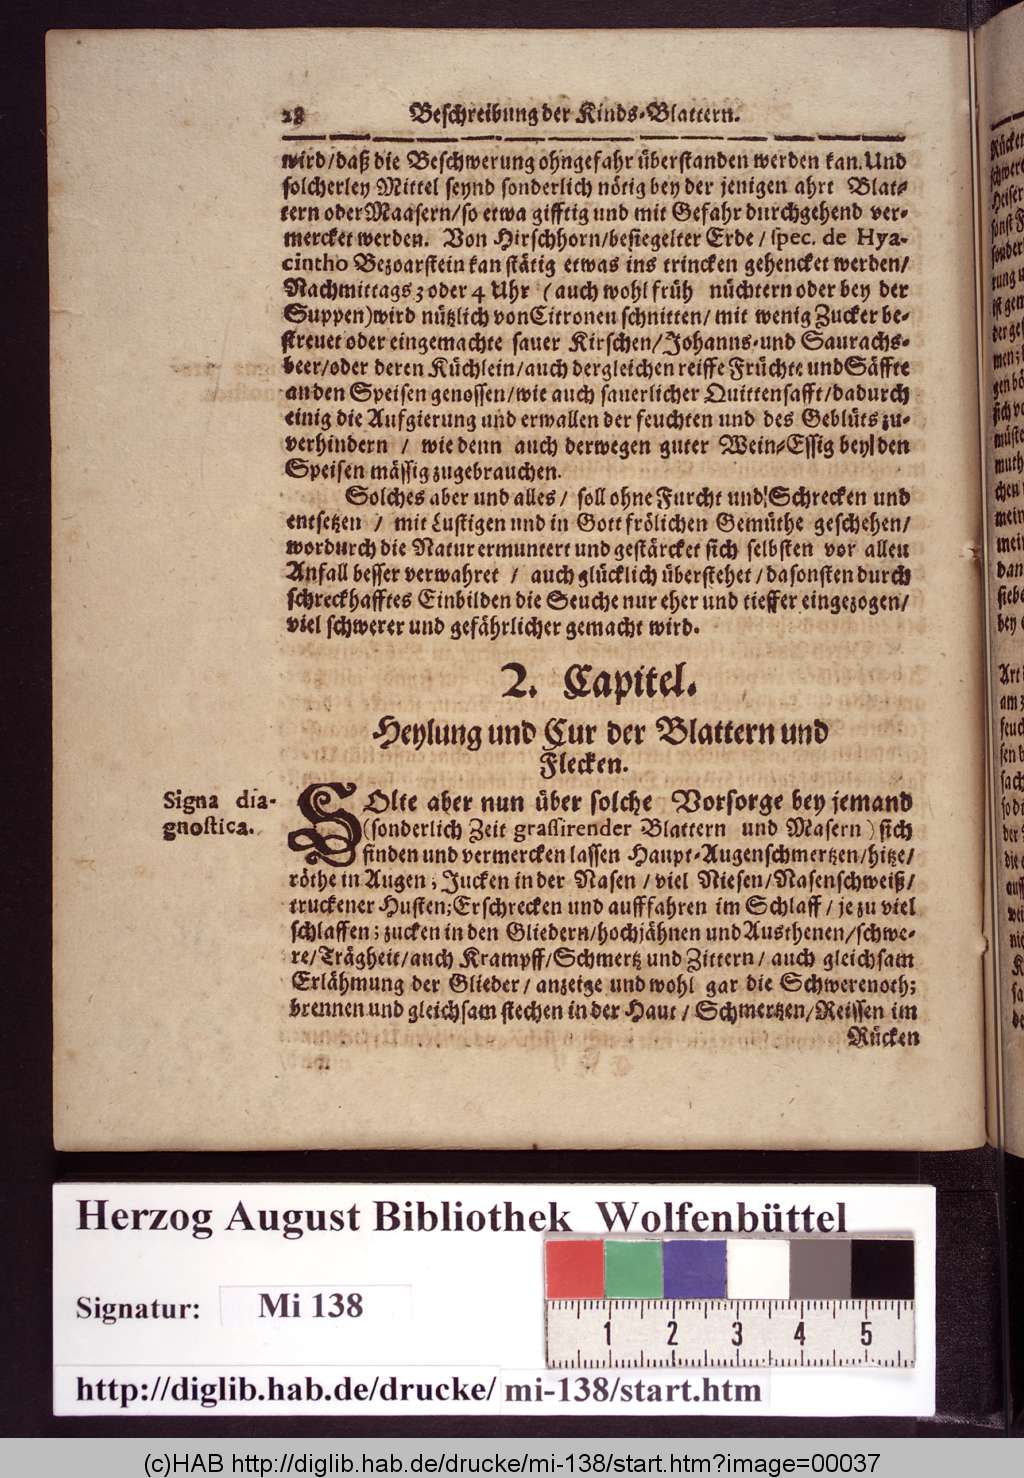 28 Beschreibung der Kinds-Blattern.
wird/daß die Beschwerung ohngefahr überstanden werden kan. Und
solcherley Mittel seynd sonderlich nötig bey der jenigen ahrt Blat-
tern oder Maasern/so etwa gifftig und mit Gefahr durchgehend ver-
mercket werden. Von Hirschhorn/besiegelter Erde / spec. de Hya-
cintho Bezoarstein kan stätig etwas ins trincken gehencket werden/
Nachmittags 3 oder 4 Uhr (auch wohl früh nüchtern oder bey der
Suppen) wird nützlich von Citronen schnitten/ mit wenig Zucker be-
streuet oder eingemachte sauer Kirschen/Johanns- und Saurachs-
beer/oder deren Küchlein/auch dergleichen reiffe Früchte und Säffte
an den Speisen genossen/wie auch sauerlicher Quittensafft/dadurch
einig die Aufgierung und erwallen der feuchten und des Geblüts zu-
verhindern / wie denn auch derwegen guter Wein-Essig bey den
Speisen mässig zugebrauchen.
Solches aber und alles / soll ohne Furcht und Schrecken und
entsetzen / mit Lustigen und in Gott frölichen Gemüthe geschehen/
wordurch die Natur ermuntert und gestärcket sich selbsten vor allen
Anfall besser verwahret / auch glücklich überstehet/da sonsten durch
schreckhafftes Einbilden die Seuche nur eher und tieffer eingezogen/
viel schwerer und gefährlicher gemacht wird.
2. Capitel.
Heylung und Cur der Blattern und
Flecken.
Signa dia-
gnostica.
SOlte aber nun über solche Vorsorge bey jemand
(sonderlich Zeit grassirender Blattern und Masern) sich
finden und vermercken lassen Haupt-Augenschmertzen/hitze/
röthe in Augen; Jucken in der Nasen / viel Niesen/Nasenschweiß/
truckener Husten; Erschrecken und aufffahren im Schlaff / je zu viel
schlaffen; zucken in den Gliedern/hochjähnen und Austhenen/schwe-
re/Trägheit/auch Krampff/Schmertz und Zittern / auch gleichsam
Erlähmung der Glieder / anzeige und wohl gar die Schwerenoth;
brennen und gleichsam stechen in der Haut / Schmertzen/Reissen im
Rücken
Herzog August Bibliothek Wolfenbüttel
Signatur: Mi 138
1 2 3 4 5
http://diglib.hab.de/drucke/ mi-138/start.htm
(c)HAB http://diglib.hab.de/drucke/mi-138/start.htm?image=00037